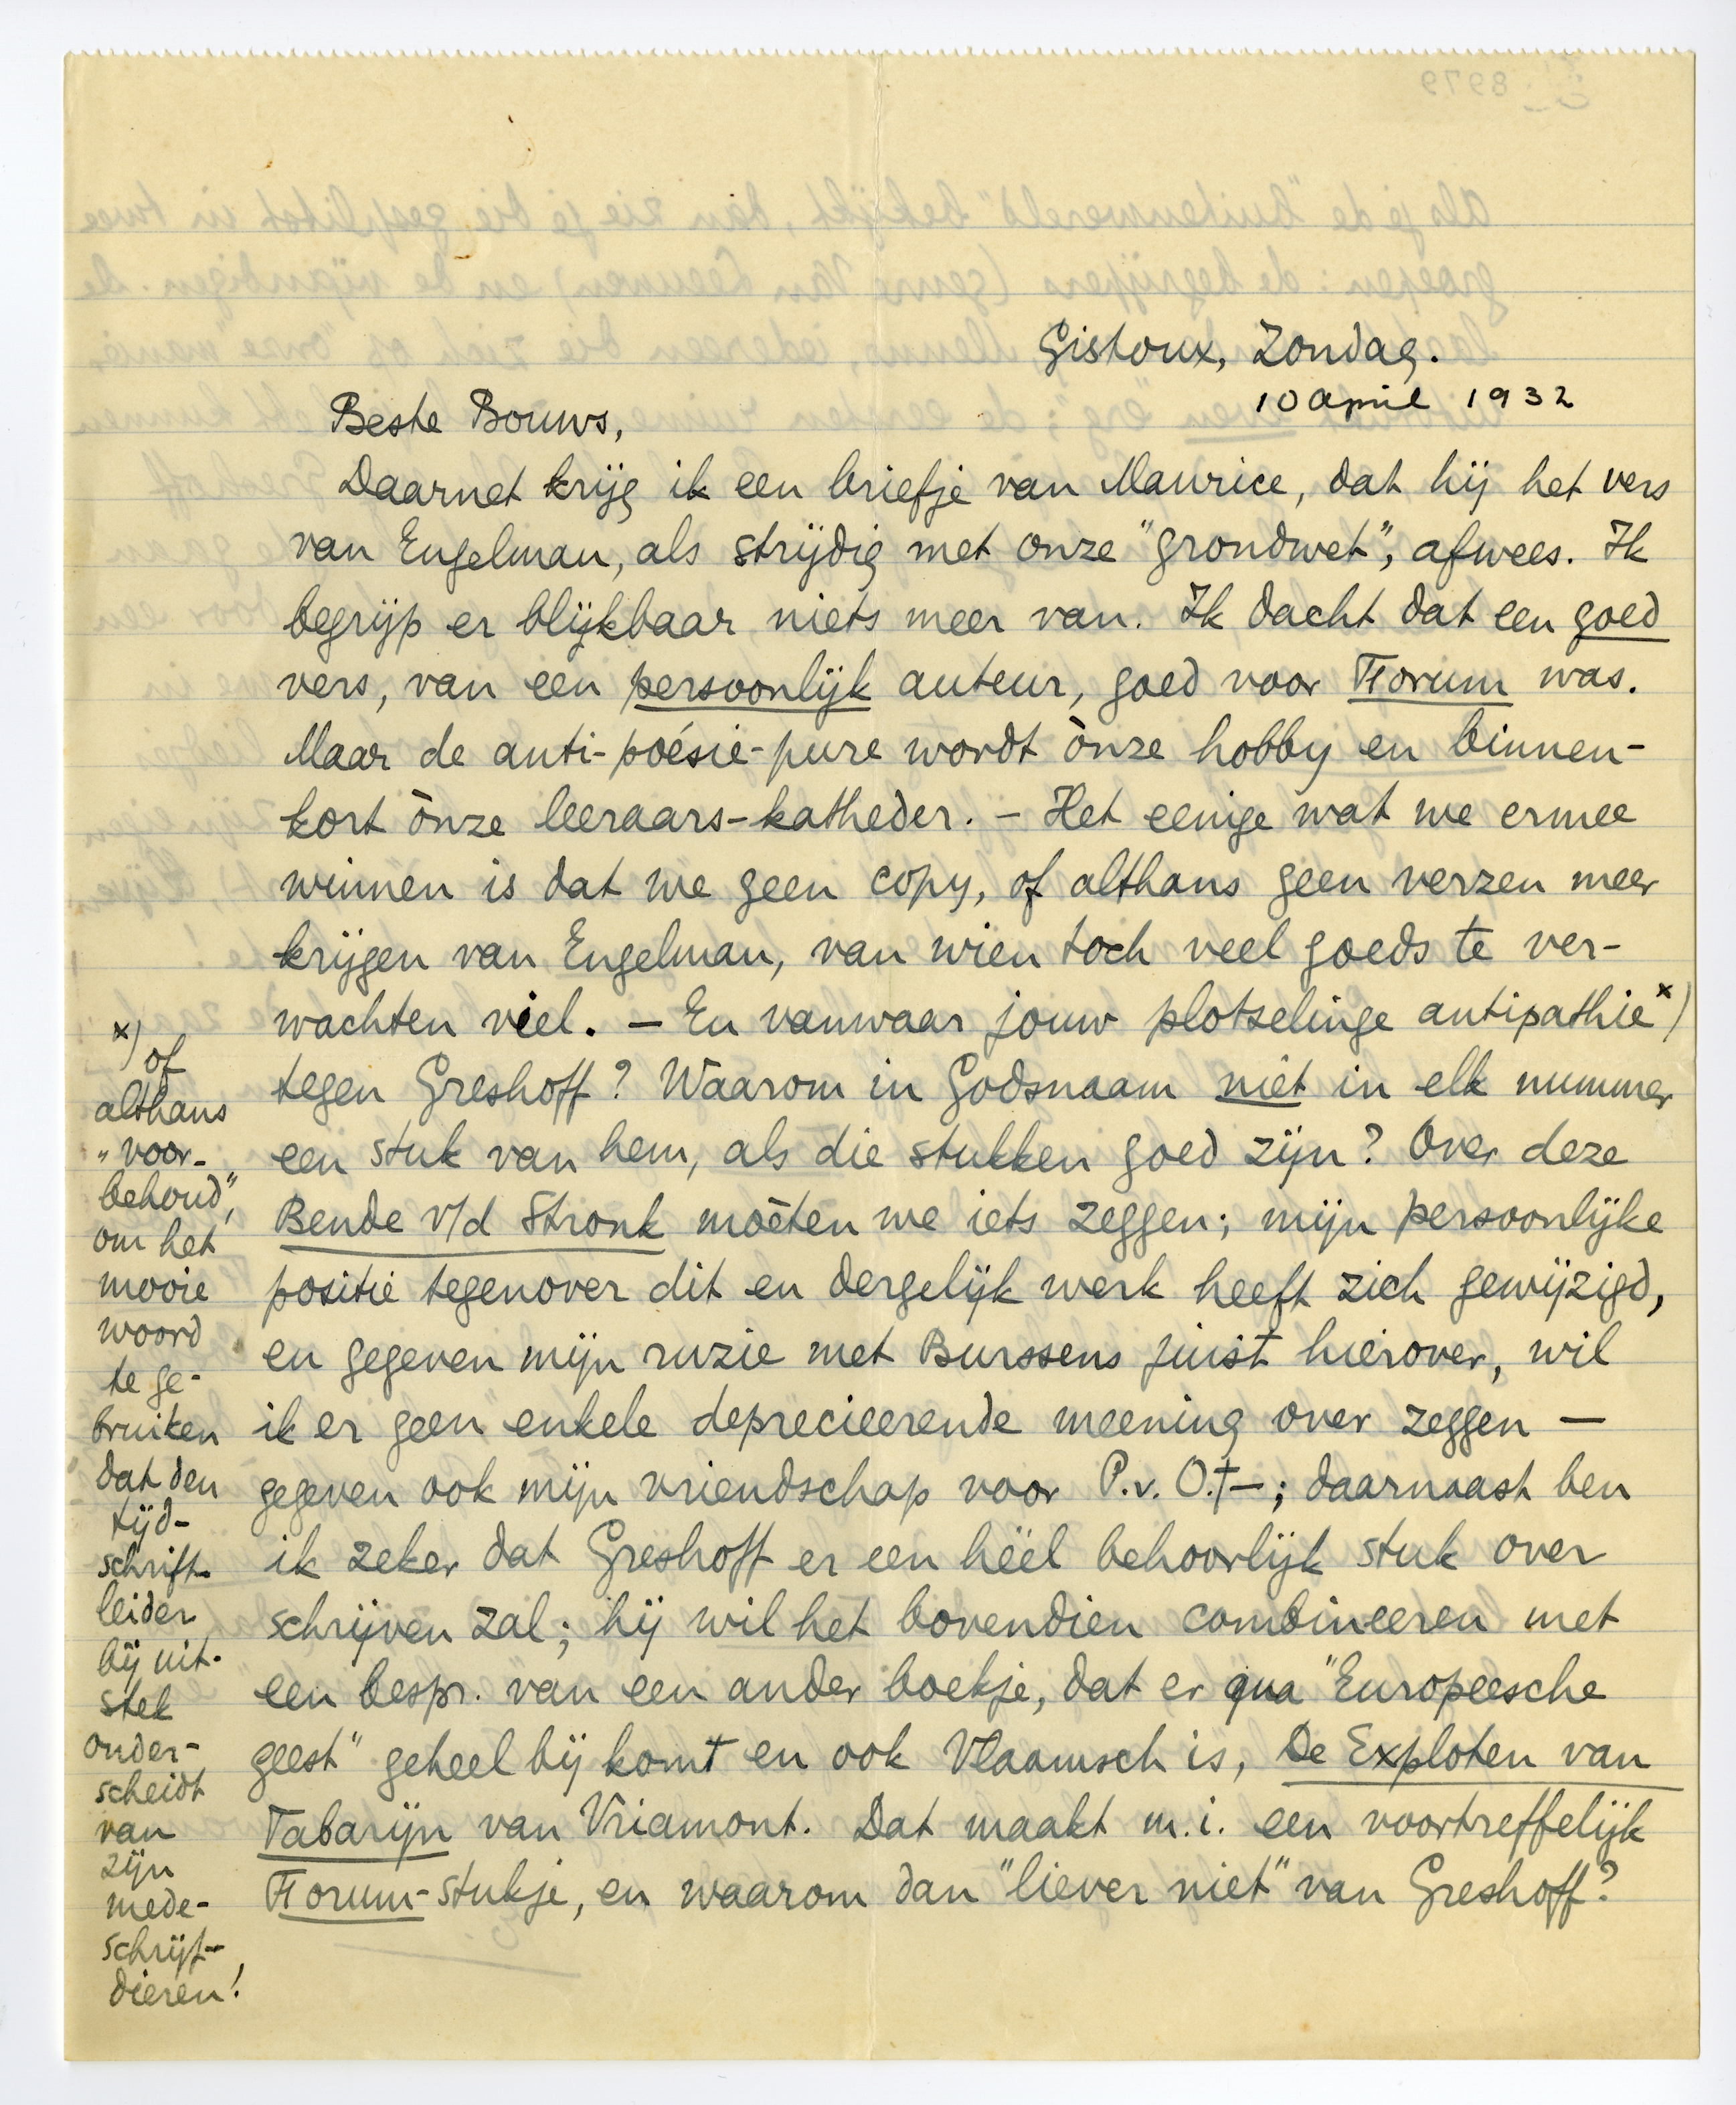 Gistoux, Zondag.
10 april 1932
Beste Bouws,
Daarnet krijg ik een briefje van Maurice, dat hij het vers
van Engelman, als strijdig met onze "grondwet", afwees. Ik
begrijp er blijkbaar niets meer van. Ik dacht dat een goed
vers, van een persoonlijk auteur, goed voor Forum was.
Maar de anti-poésie-pure wordt ònze hobby en binnen-
kort ònze leeraars-katheder. – Het eenige wat we ermee
winnen is dat we geen copy, of althans geen verzen meer
krijgen van Engelman, van wien toch veel goeds te ver-
wachten viel. – En vanwaar jouw plotselinge antipathie x)
tegen Greshoff? Waarom in Godsnaam niet in elk nummer
een stuk van hem, als die stukken goed zijn? Over deze
Bende v/d Stronk moèten we iets zeggen; mijn persoonlijke
positie tegenover dit en dergelijk werk heeft zich gewijzigd,
en gegeven mijn ruzie met Burssens juist hierover, wil
ik er geen enkele deprecieerende meening over zeggen –
gegeven ook mijn vriendschap voor P.v.O.† –; daarnaast ben
ik zeker dat Greshoff er een héél behoorlijk stuk over
schrijven zal; hij wil het bovendien combineeren met
een bespr. van een ander boekje, dat er qua "Europeesche
geest" geheel bij komt en ook Vlaamsch is, De Exploten van
Tabarijn van Vriamont. Dat maakt m.i. een voortreffelijk
Forum-stukje, en waarom dan "liever niet" van Greshoff?
x) of
althans
"voor-
behoud",
om het
mooie
woord
te ge-
bruiken
dat den
tijd-
schrift-
leider
bij uit-
stek
onder-
scheidt
van
zijn
mede-
schrijf-
dieren!